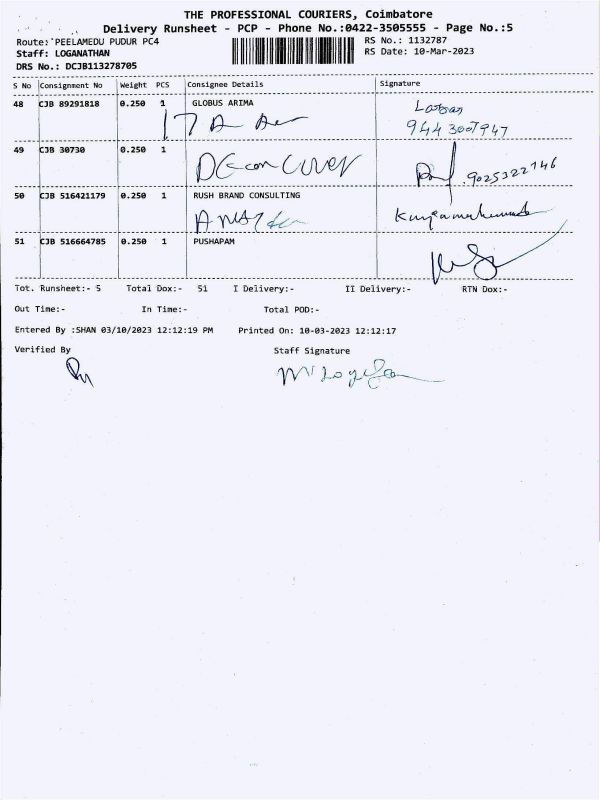 THE PROFESSIONAL COURIERS, Coimbatore
Delivery Runsheet - PCP - Phone No.:0422-3505555 - Page No.:5
Route: PEELAMEDU PUDUR PC4
RS No.: 1132787
Staff: LOGANATHAN
RS Date: 10-Mar-2023
DRS No.: DCJB113278705
S No Consignment No Weight PCS Consignee Details Signature
48 CJB 89291818 0.250 1 GLOBUS ARIMA
9443007947
49 CJB 30730 0.250 1
9025322746
50 CJB 516421179 0.250 1 RUSH BRAND CONSULTING
51 CJB 516664785 0.250 1 PUSHAPAM
Tot. Runsheet:- 5 Total Dox:- 51 I Delivery:- II Delivery:- RTN Dox:-
Out Time:- In Time:- Total POD:-
Entered By :SHAN 03/10/2023 12:12:19 PM Printed On: 10-03-2023 12:12:17
Verified By Staff Signature